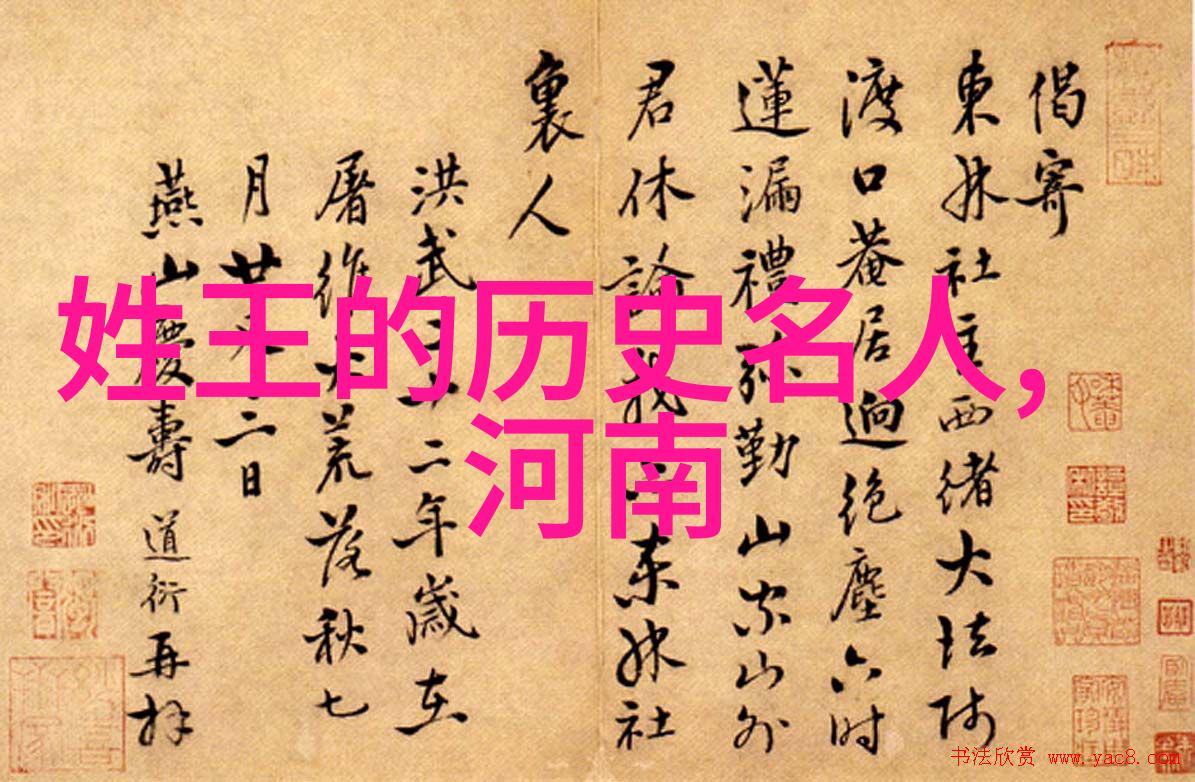 姓王的历史名人,
河南
偈寄
東林社主西緒大法師
渡口菴居迥絶塵六时
蓮漏禮弥勤山家山外
君休論我東林社
裏人
洪武二十二年歲在
屠維大荒落秋七
月廿二日
燕山慶壽道衍再拜
书法欣赏 www.yac8.com